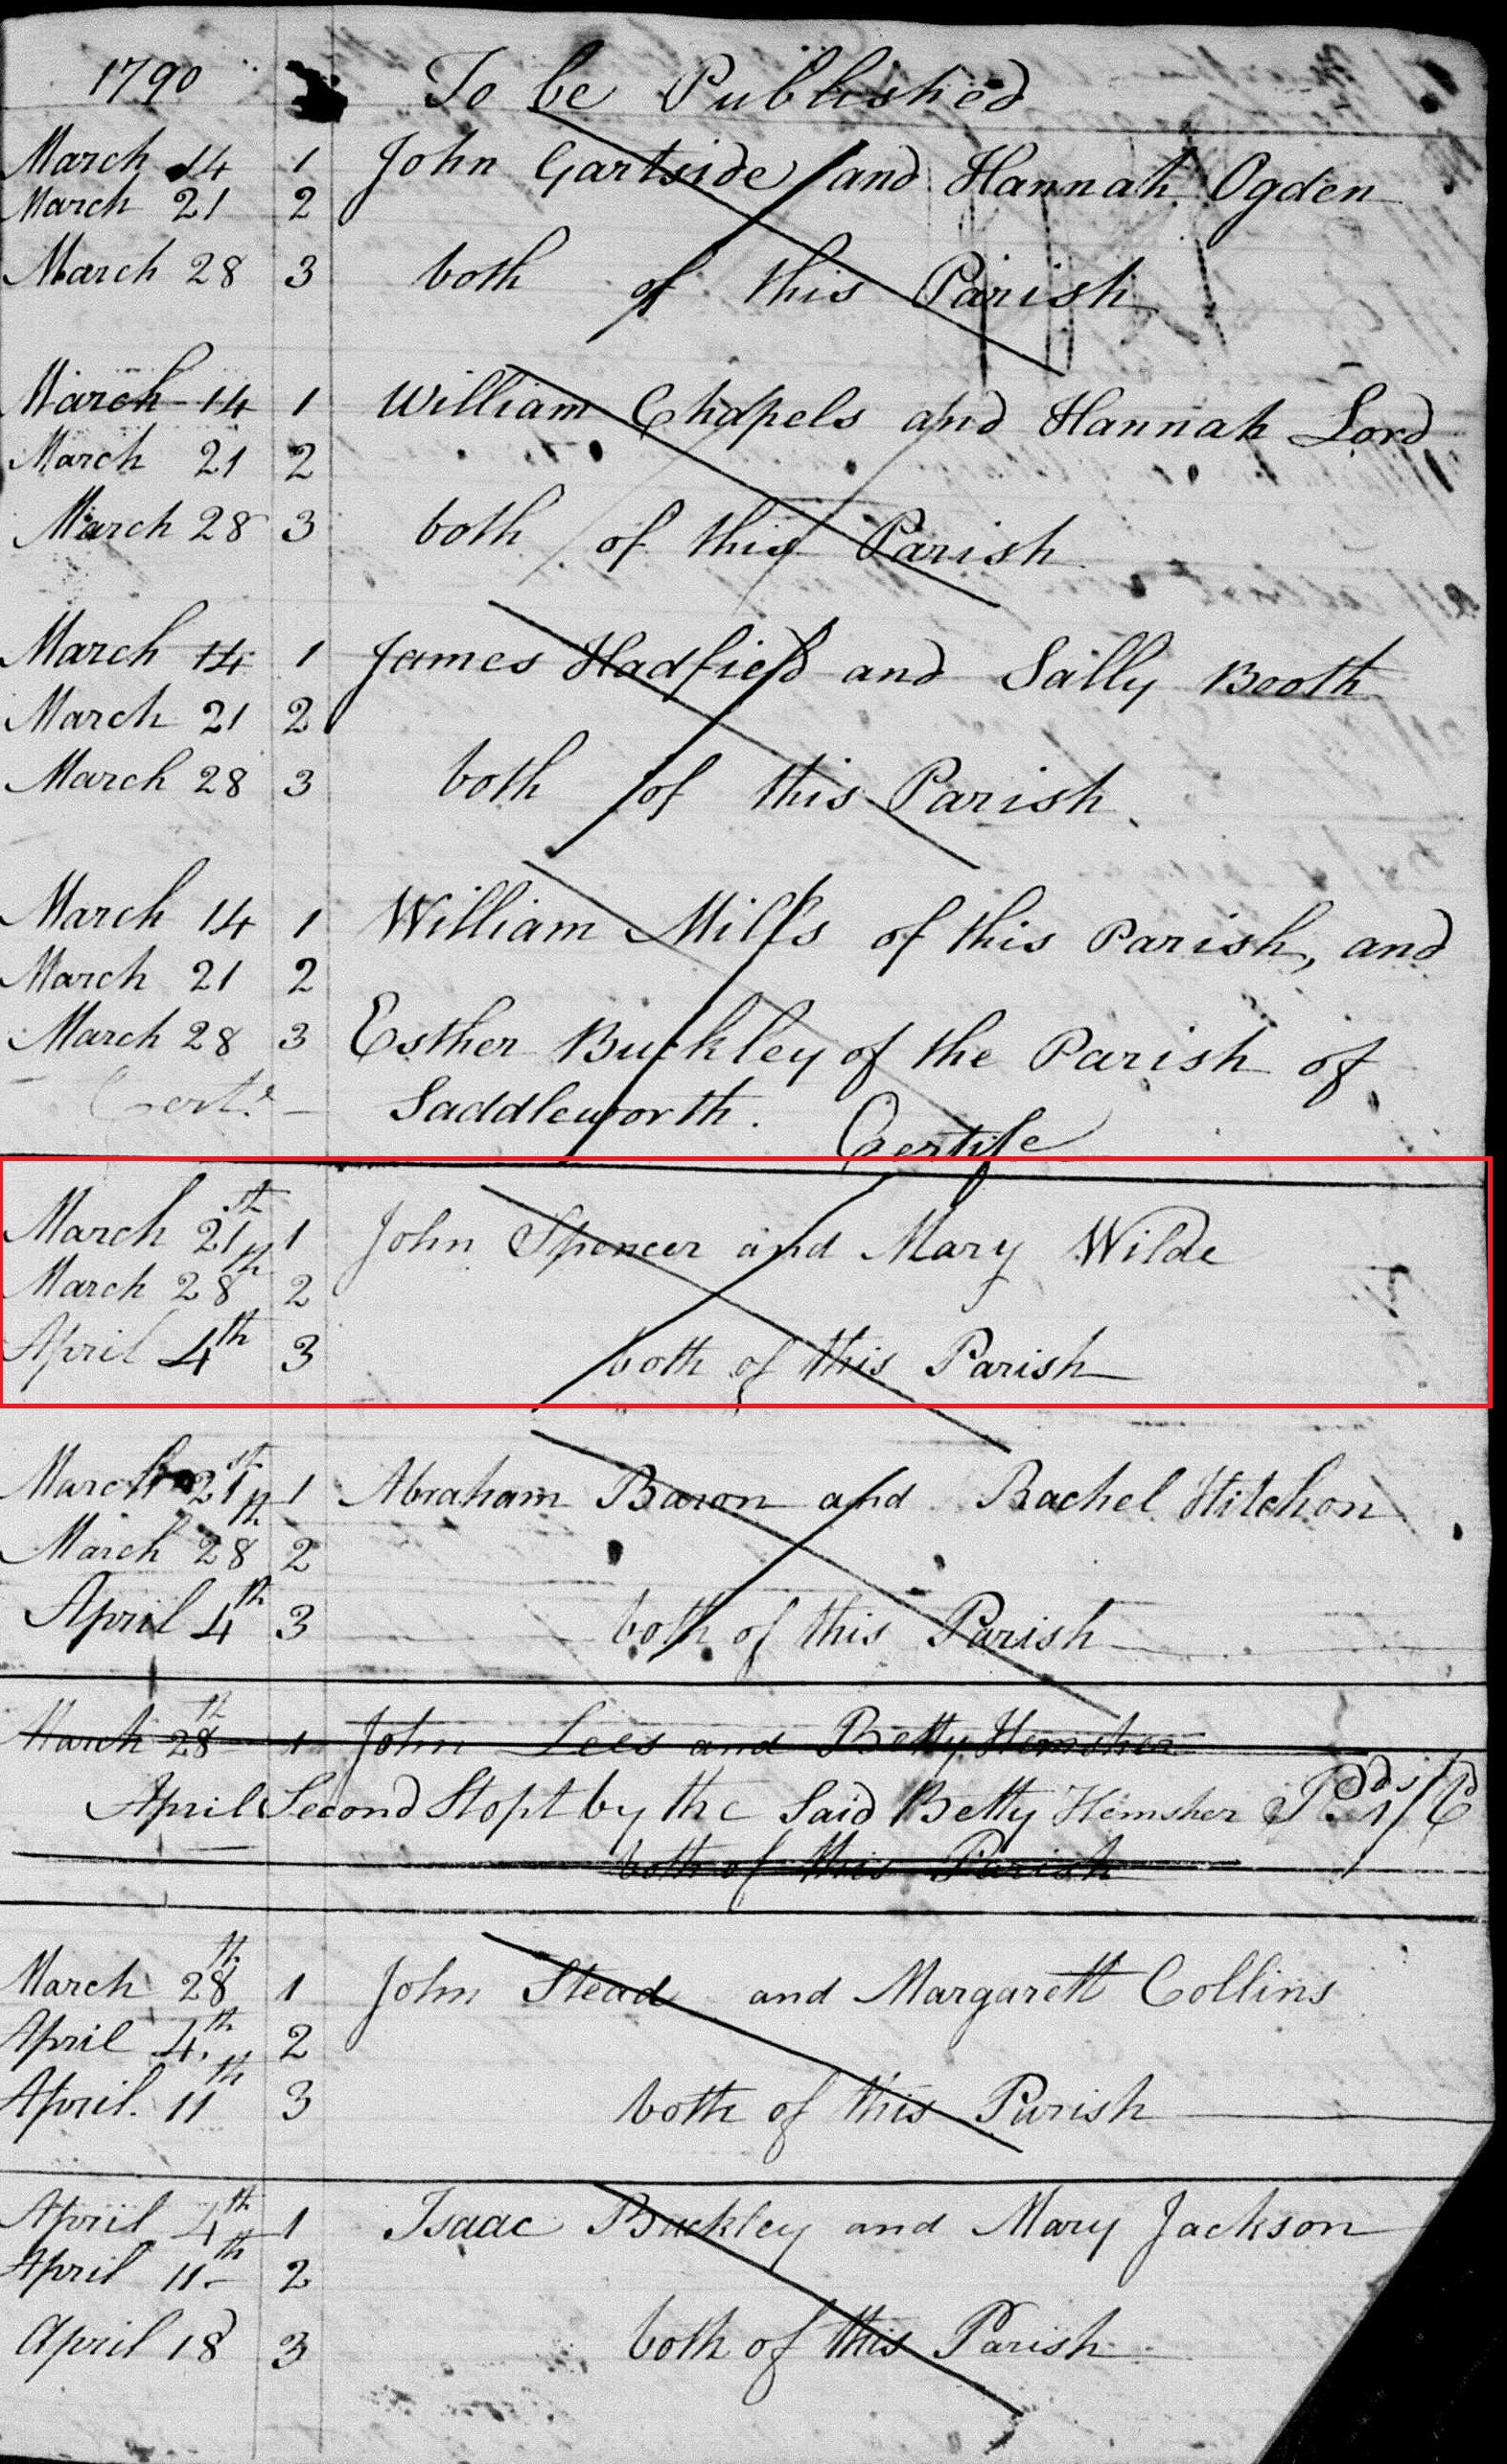 1790 To be Published
March 14 1 John Gartside and Hannah Ogden
March 21 2
March 28 3 both of this Parish
March 14 1 William Chapels and Hannah Lord
March 21 2
March 28 3 both of this Parish
March 14 1 James Hadfield and Sally Booth
March 21 2
March 28 3 both of this Parish
March 14 1 William Mills of this Parish, and
March 21 2
March 28 3 Esther Buckley of the Parish of
Saddleworth.
March 21st 1 John Spencer and Mary Wilde
March 28th 2
April 4th 3 both of this Parish
March 21st 1 Abraham Baron and Rachel Hitchon
March 28th 2
April 4th 3 both of this Parish
March 28th 1 John Lees and Betty Hemsher
April Second Stopt by the Said Betty Hemsher
both of this Parish
March 28th 1 John Stead and Margarett Collins
April 4th 2
April 11th 3 both of this Parish
April 4th 1 Isaac Buckley and Mary Jackson
April 11th 2
April 18 3 both of this Parish